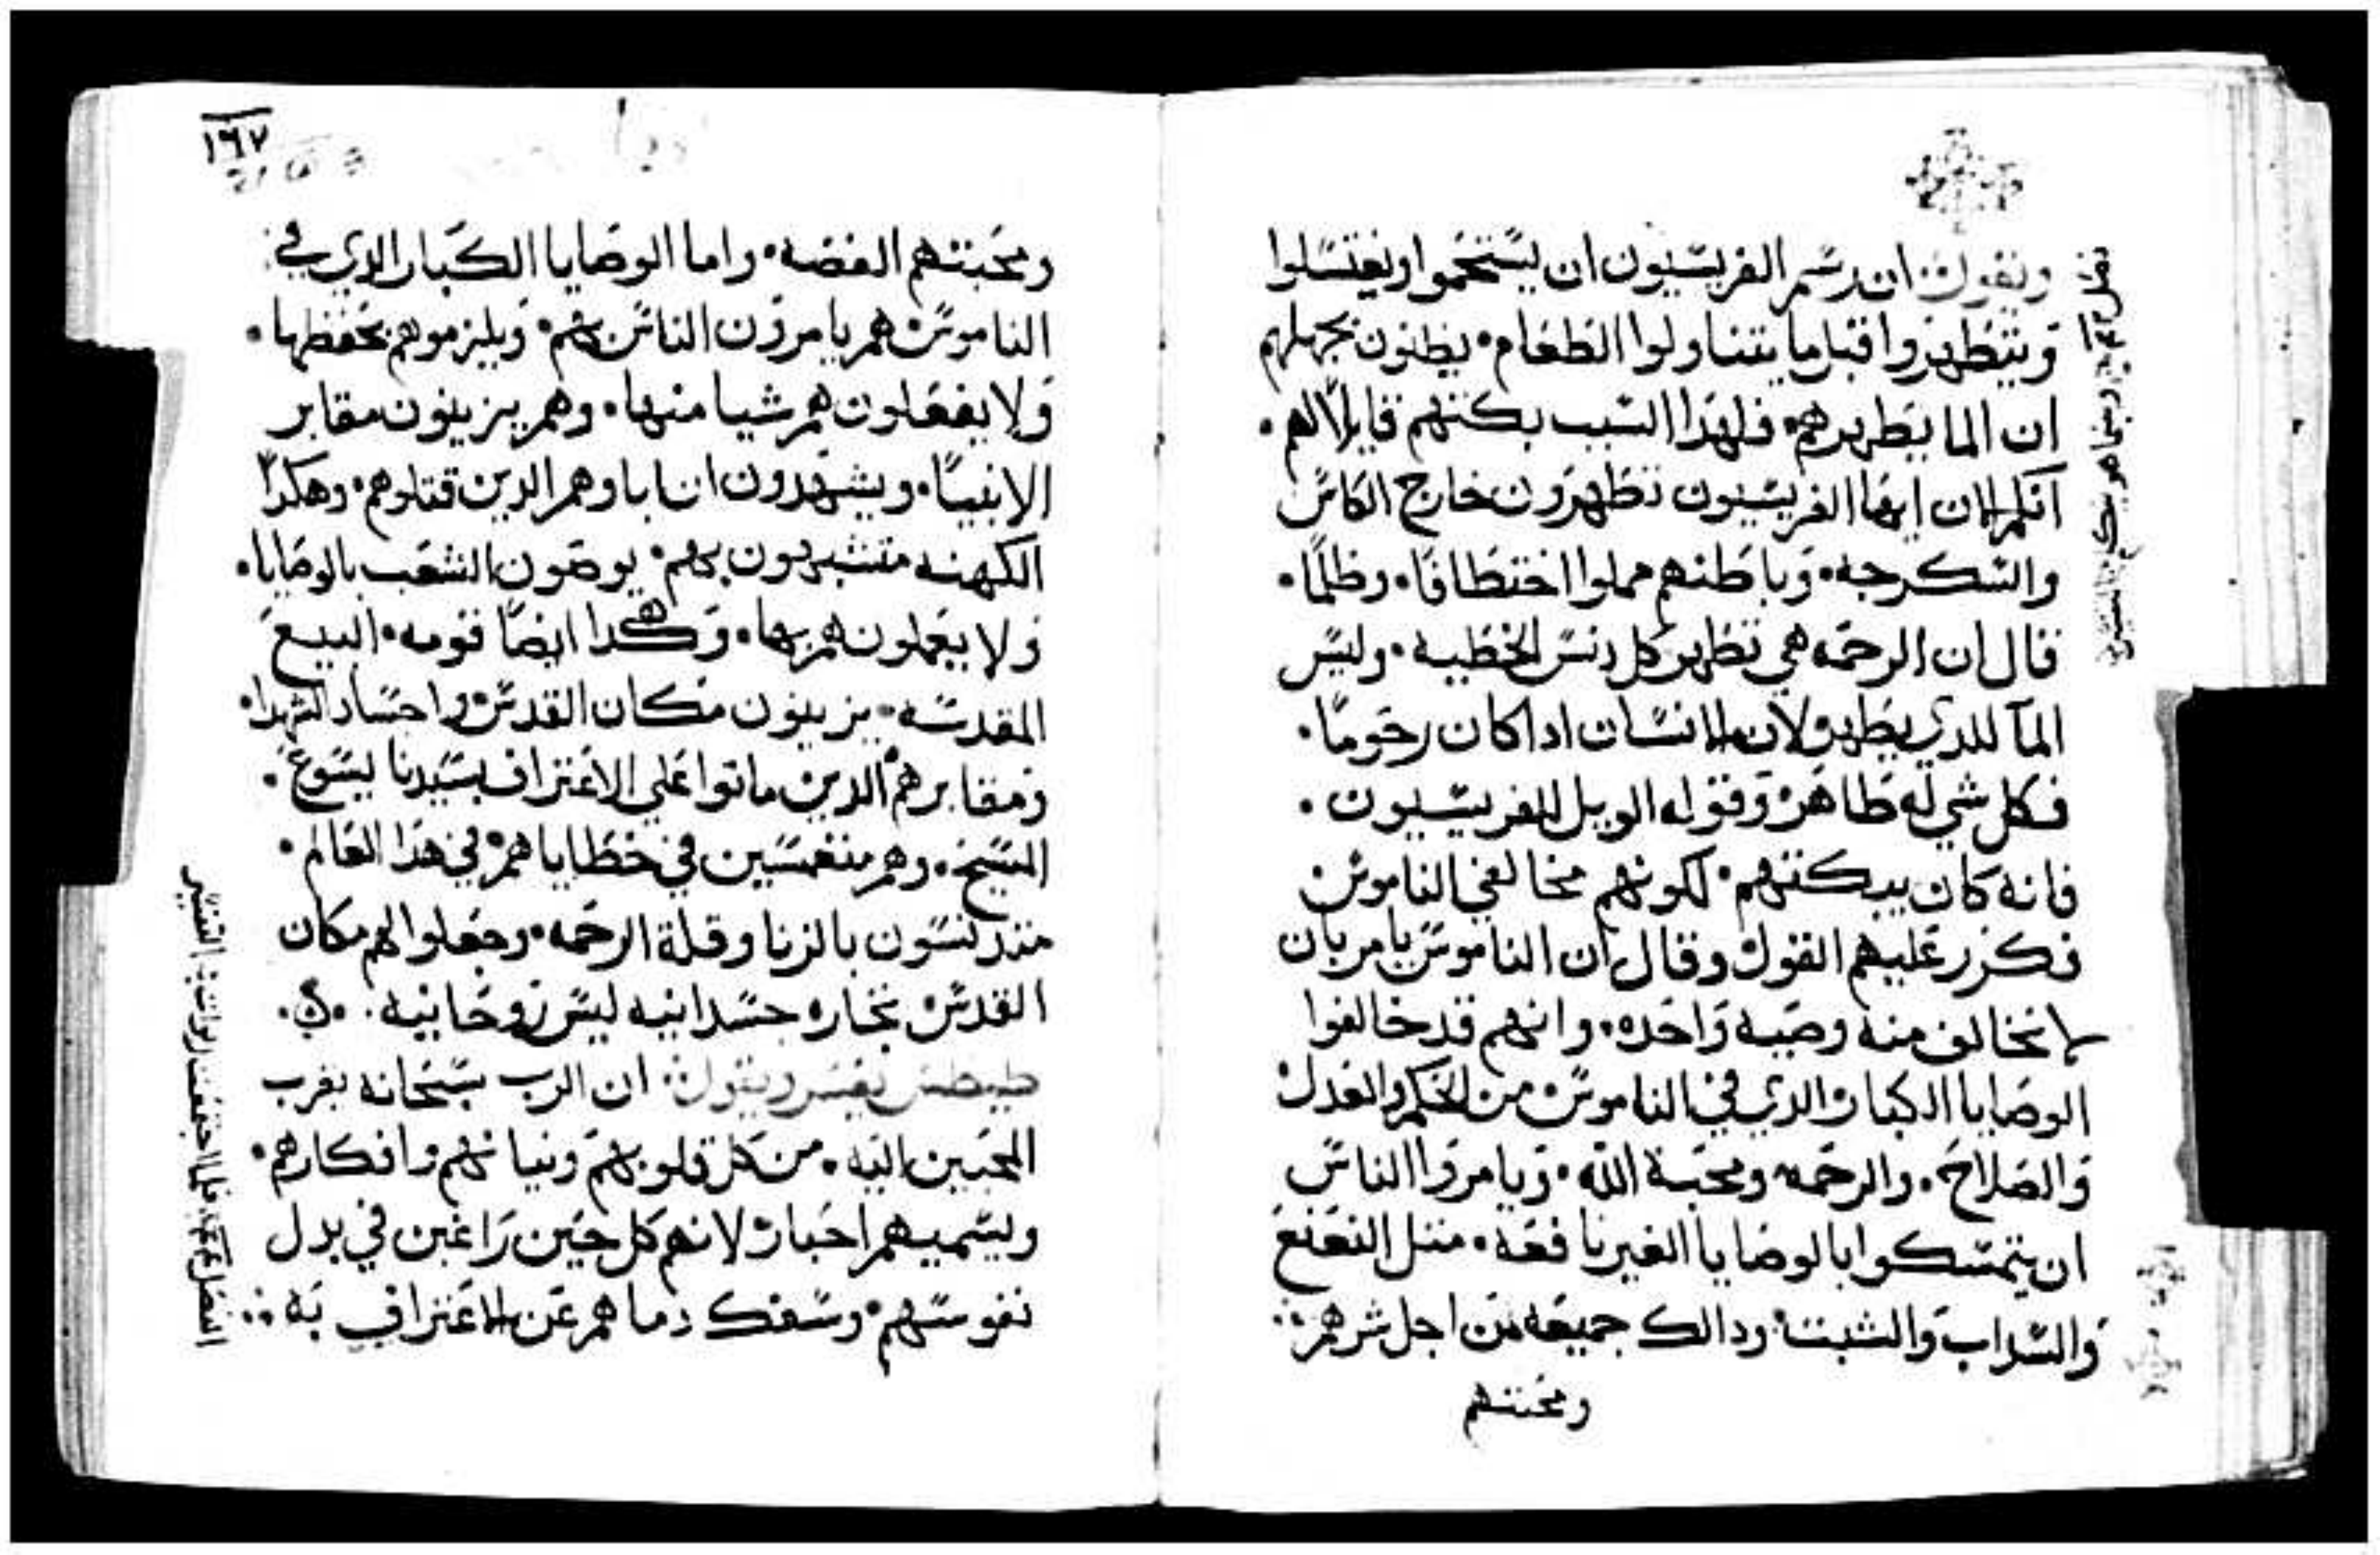 ويقول ان رسم الفريسيون ان يستحموا ويغتسلوا
ويتطهروا قبل ما يتناولوا الطعام۰ يظنون بجهلهم
ان الما يطهرهم۰ فلهدا السبب بكتهم قايلا لهم۰
انكم الان ايها الفريسيون تطهرون خارج الكاس
والسكرجه۰ وباطنهم مملوا اختطافا۰ وظلما۰
قال ان الرحمه هي تطهر كل دنس الخطيه۰ وليس
المآ للدي يطهر لان الانسان ادا كان رحوما۰
فكل شي له طاهر وقوله الويل للفريسيون۰
فانه كان يبكتهم۰ لكونهم مخالفي الناموس
فكرر عليهم القول وقال ان الناموس يامر بان
لا تخالف منه وصيه واحده۰ وانهم قد خالفوا
الوصايا الكبار الدي في الناموس من الحكم والعدل
والصلاح۰ والرحمه ومحبة الله۰ ويامروا الناس
ان يتمسكوا بالوصايا الغير نافعه۰ متل النعنع
والسداب والشبت ودالك جميعه من اجل شرهم
ومحبتهم
١٩٧
ومحبتهم الفضه۰ واما الوصايا الكبار الدي في
الناموس هم يامرون الناس بهم۰ ويلزموهم بحفظها۰
ولا يفعلون هم شيا منها۰ وهم يزينون مقابر
الانبيا۰ ويشهدون ان اباوهم الدين قتلوهم۰ وهكدا
الكهنه متشبهون بهم۰ يوصون الشعب بالوصايا۰
ولا يعملون هم بها۰ وهكدا ايضا قومه۰ البيع
المقدسه۰ يزينون مكان القدس واجساد الشهدا۰
ومقابرهم الدين ماتوا على الاعتراف بسيدنا يسوع۰
المسيح۰ وهم منغمسين في خطاياهم في هدا العالم۰
متدنسون بالزنا وقلة الرحمه۰ وجعلوا لهم مكان
القدس تجاره جسدانيه ليس روحانيه۰
طيطس يفسر ويقول ان الرب سبحانه يقرب
المحبين اليه۰ من كل قلوبهم ونياتهم وافكارهم۰
ويسميهم احبار لانهم كل حين راغبين في بدل
نفوسهم۰ وسفك دماهم عن الاعتراف به